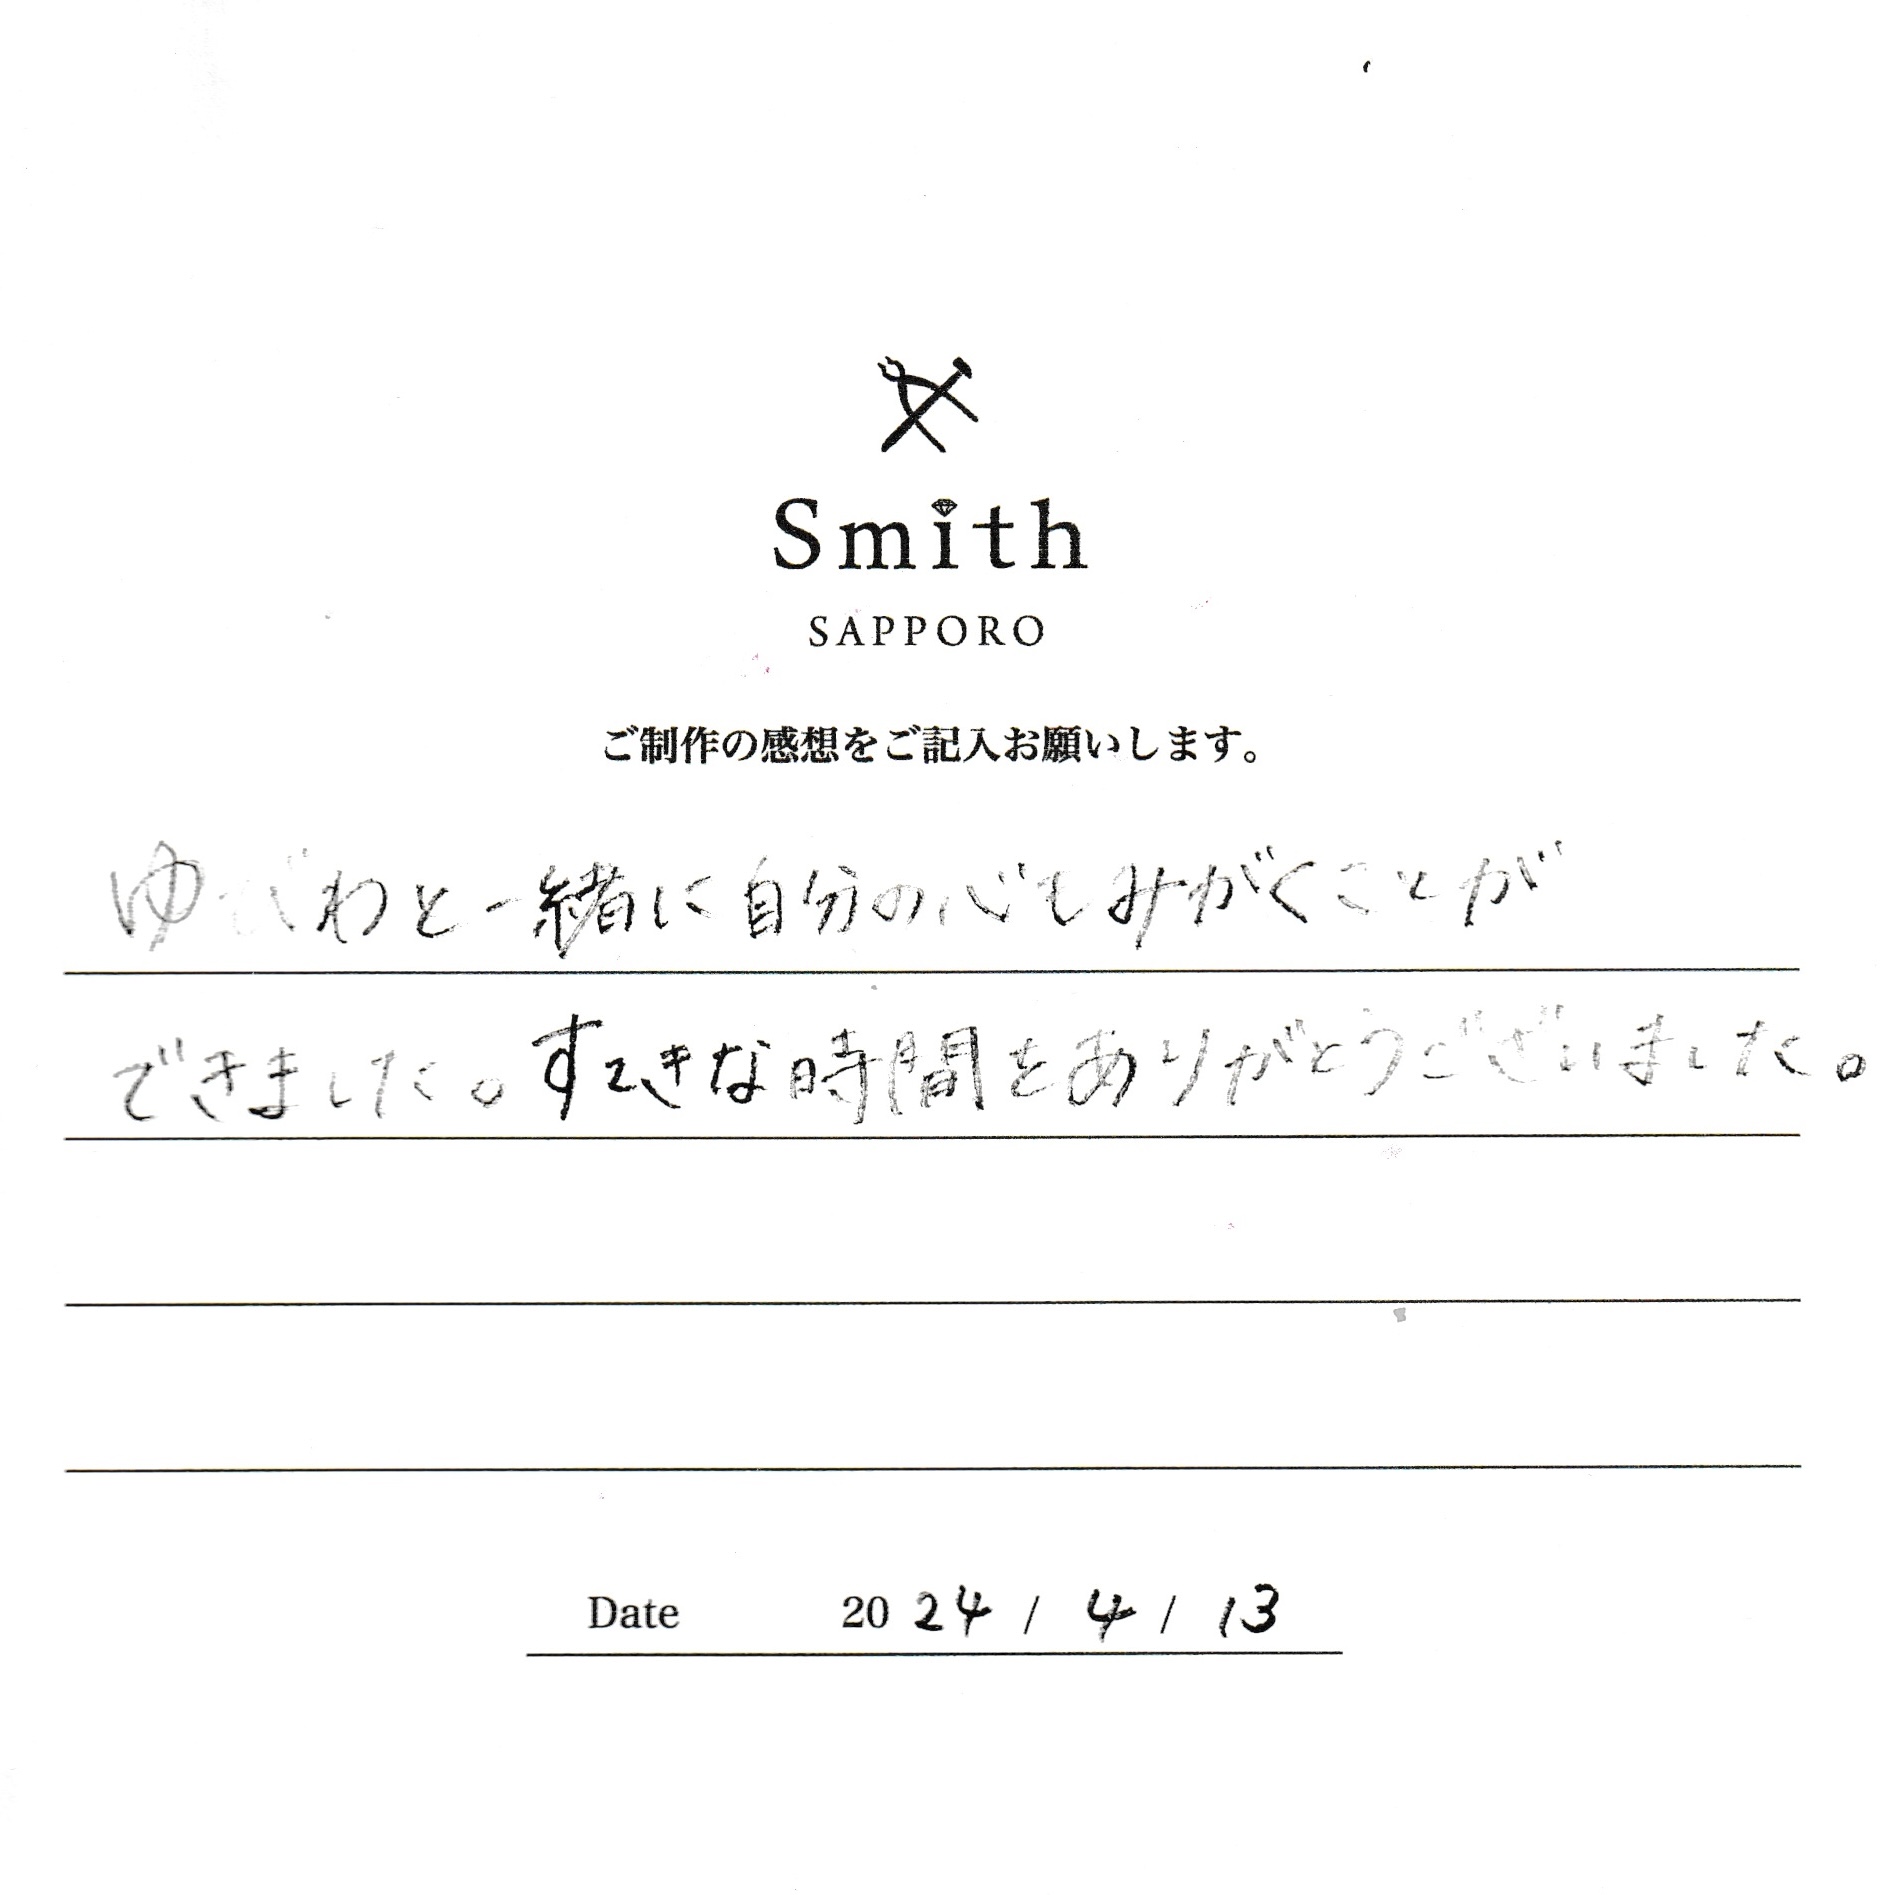 Smith
SAPPORO
ご制作の感想をご記入お願いします。
ゆびわと一緒に自分の心もみがくことが
できました。すてきな時間をありがとうございました。
Date 2024 / 4 / 13